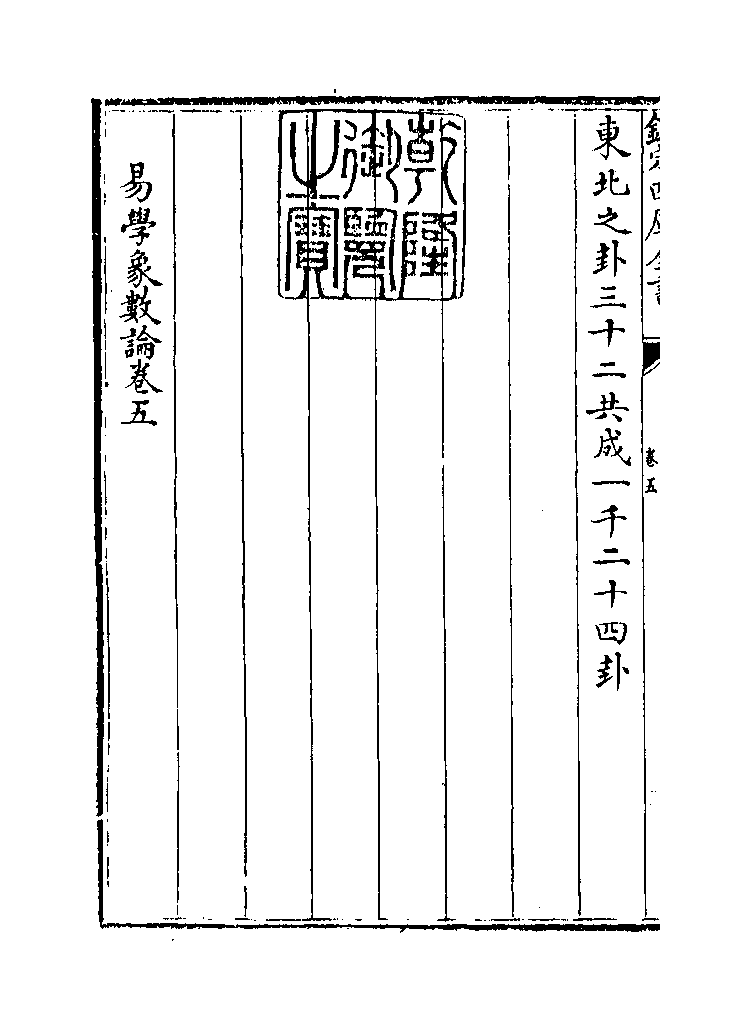 欽定四庫全書
卷五
東北之卦三十二共成一千二十四卦
乾隆
御覽
之寶
易學象數論卷五